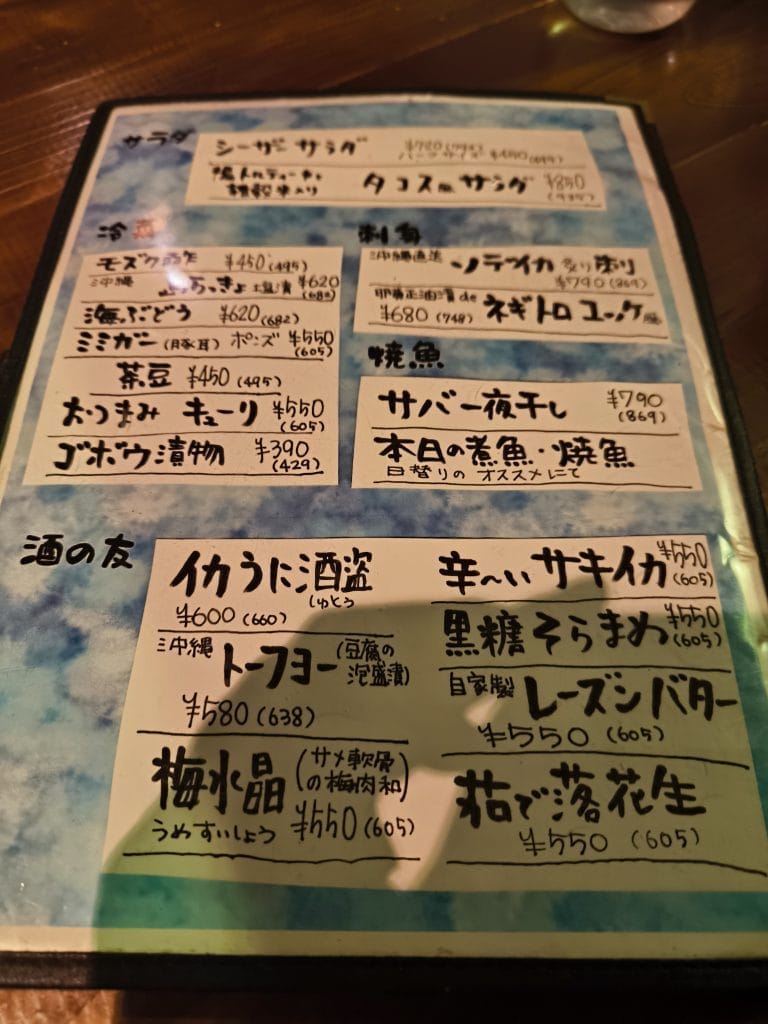 サラダ
シーザーサラダ ¥720(792)
ハーフサイズ ¥450(495)
雑穀米入り タコス風サラダ ¥850
(935)
冷菜
モズク酢 ¥450(495)
沖縄 島らっきょ 塩漬 ¥620
(682)
海ぶどう ¥620(682)
ミミガー(豚耳) ポンズ ¥550
(605)
茶豆 ¥450(495)
おつまみ キューリ ¥550
(605)
ゴボウ漬物 ¥390
(429)
刺身
沖縄直送 ソデイカ 炙り
¥790(869)
正油漬 de ネギトロユッケ風
¥680(748)
焼魚
サバ一夜干し ¥790
(869)
本日の煮魚・焼魚
日替りの オススメにて
酒の友
イカうに酒盗
しゅとう
¥600(660)
沖縄 トーフヨー(豆腐の
泡盛漬)
¥580(638)
梅水晶(サメ軟骨
の梅肉和)
うめすいしょう ¥550(605)
辛〜いサキイカ ¥550
(605)
黒糖そらまめ ¥550
(605)
自家製 レーズンバター
¥550(605)
茹で落花生
¥550(605)